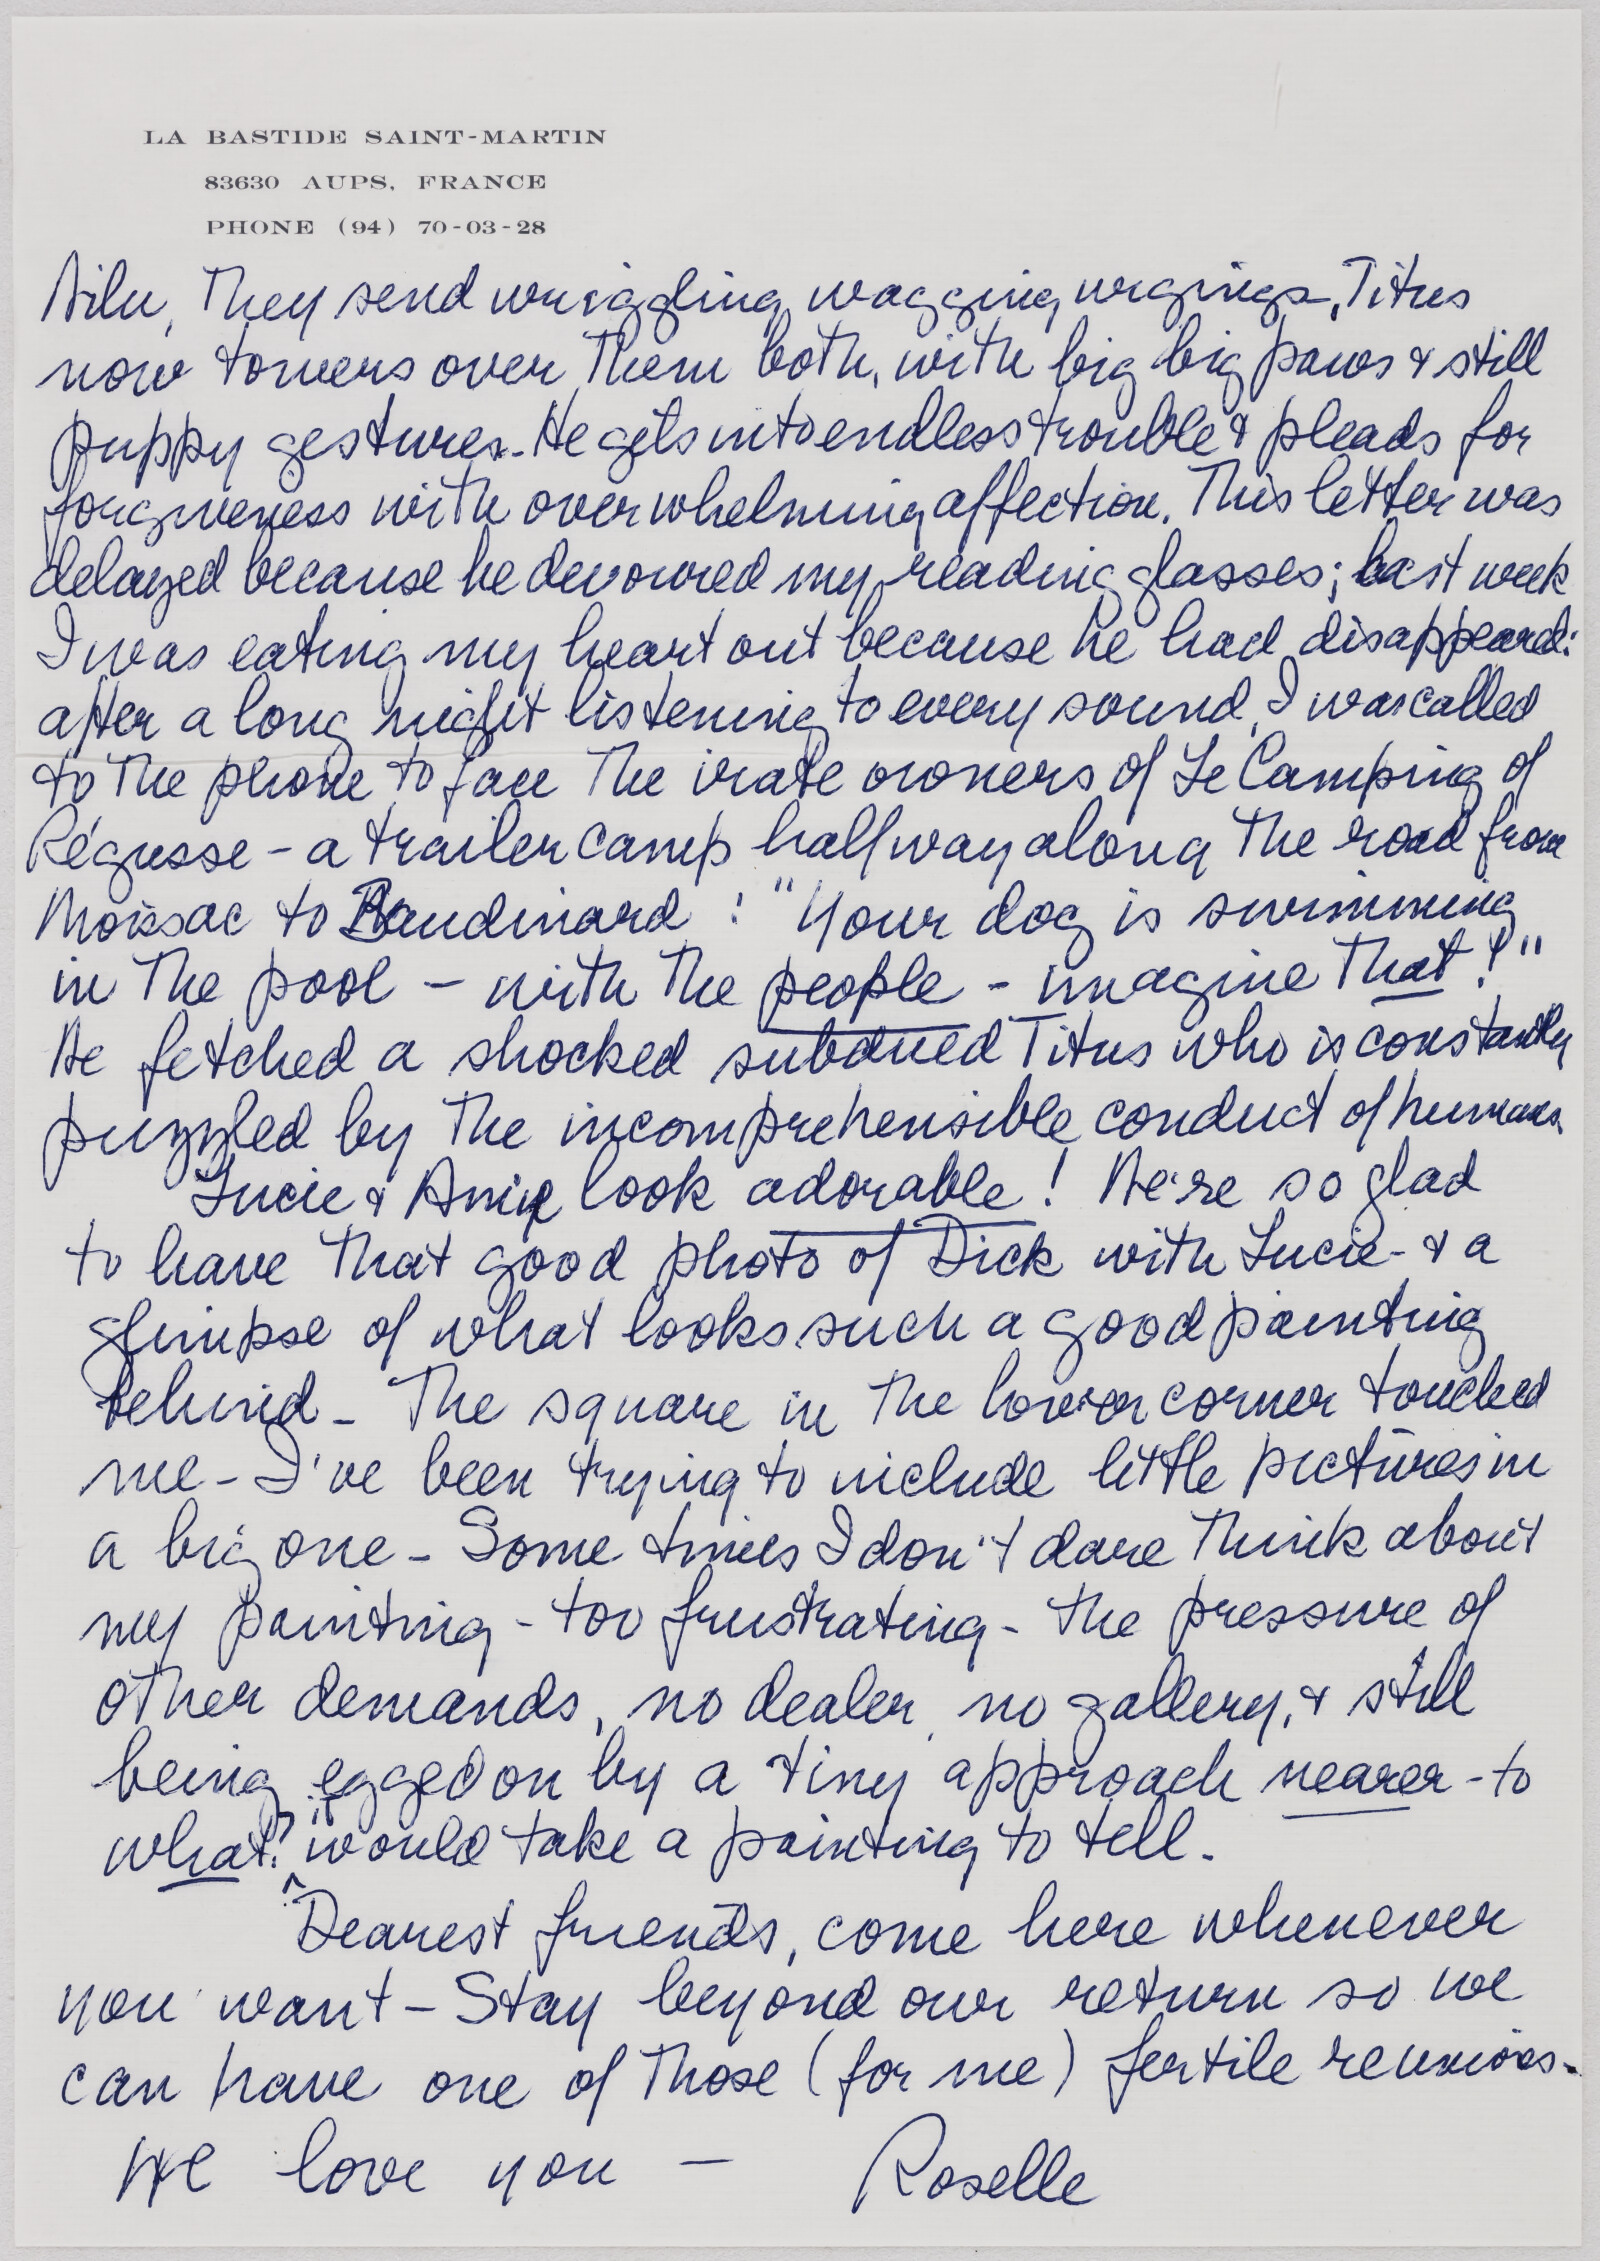 LA BASTIDE SAINT-MARTIN
83630 AUPS, FRANCE
PHONE (94) 70-03-28
They send wriggling, wagging urgings, Titus
now towers over them both, with big big paws & still
puppy gestures. He gets into endless trouble & pleads for
forgiveness with overwhelming affection. This letter was
delayed because he devoured my reading glasses; last week
I was eating my heart out because he had disappeard:
after a long night listening to every sound, I was called
to the phone to face the irate owners of Le Camping of
Régusse - a trailer camp halfway along the road from
Moissac to Baudinard : "Your dog is swimming
in the pool - with the people - imagine that!"
We fetched a shocked subdued Titus who is constantly
puzzled by the incomprehensible conduct of humans.
Lucie & look adorable! We're so glad
to have that good photo of Dick with Lucie - & a
glimpse of what looks such a good painting
behind - The square in the lower corner touched
me - I've been trying to include little pictures in
a big one - Some times I don't dare think about
my painting - too frustrating - the pressure of
other demands, no dealer, no gallery, & still
being egged on by a tiny approach nearer - to
what? it would take a painting to tell.
Dearest friends, come here whenever
you want - Stay beyond our return so we
can have one of those (for me) fertile reunions -
We love you - Roselle